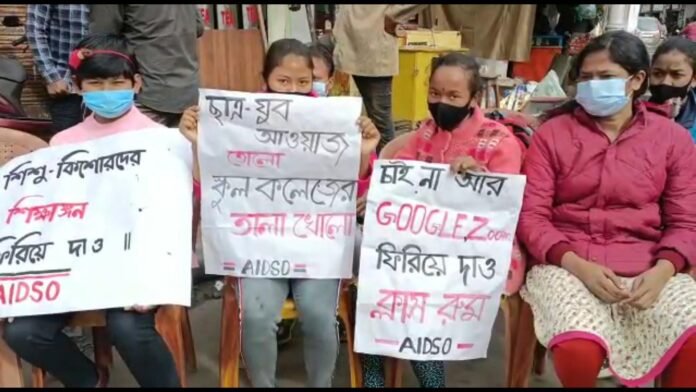 শিশু-কিশোরদের
শিক্ষাঙ্গন
ফিরিয়ে দাও ॥
AIDSO
ছাত্র-যুব
আওয়াজ
তোলো
স্কুল কলেজের
তালা খোলো
= AIDSO =
চাই না আর
GOOGLE Zoom
ফিরিয়ে দাও
ক্লাস রুম
= AIDSO =